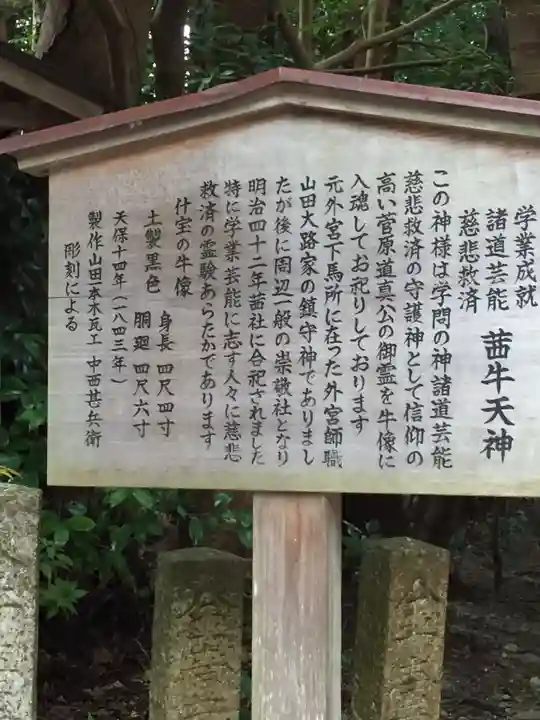 学業成就
諸道芸能
慈悲救済
茜牛天神
この神様は学問の神諸道芸能
慈悲救済の守護神として信仰の
高い菅原道真公の御霊を牛像に
入魂してお祀りしております
元外宮下馬所に在った外宮師職
山田大路家の鎮守神でありまし
たが後に周辺一般の崇敬社となり
明治四十二年茜社に合祀されました
特に学業芸能に志す人々に慈悲
救済の霊験あらたかであります
什宝の牛像
土製黒色
身長 四尺四寸
胴廻 四尺六寸
天保十四年(一八四三年)
製作山田本木瓦工 中西甚兵衛
彫刻による